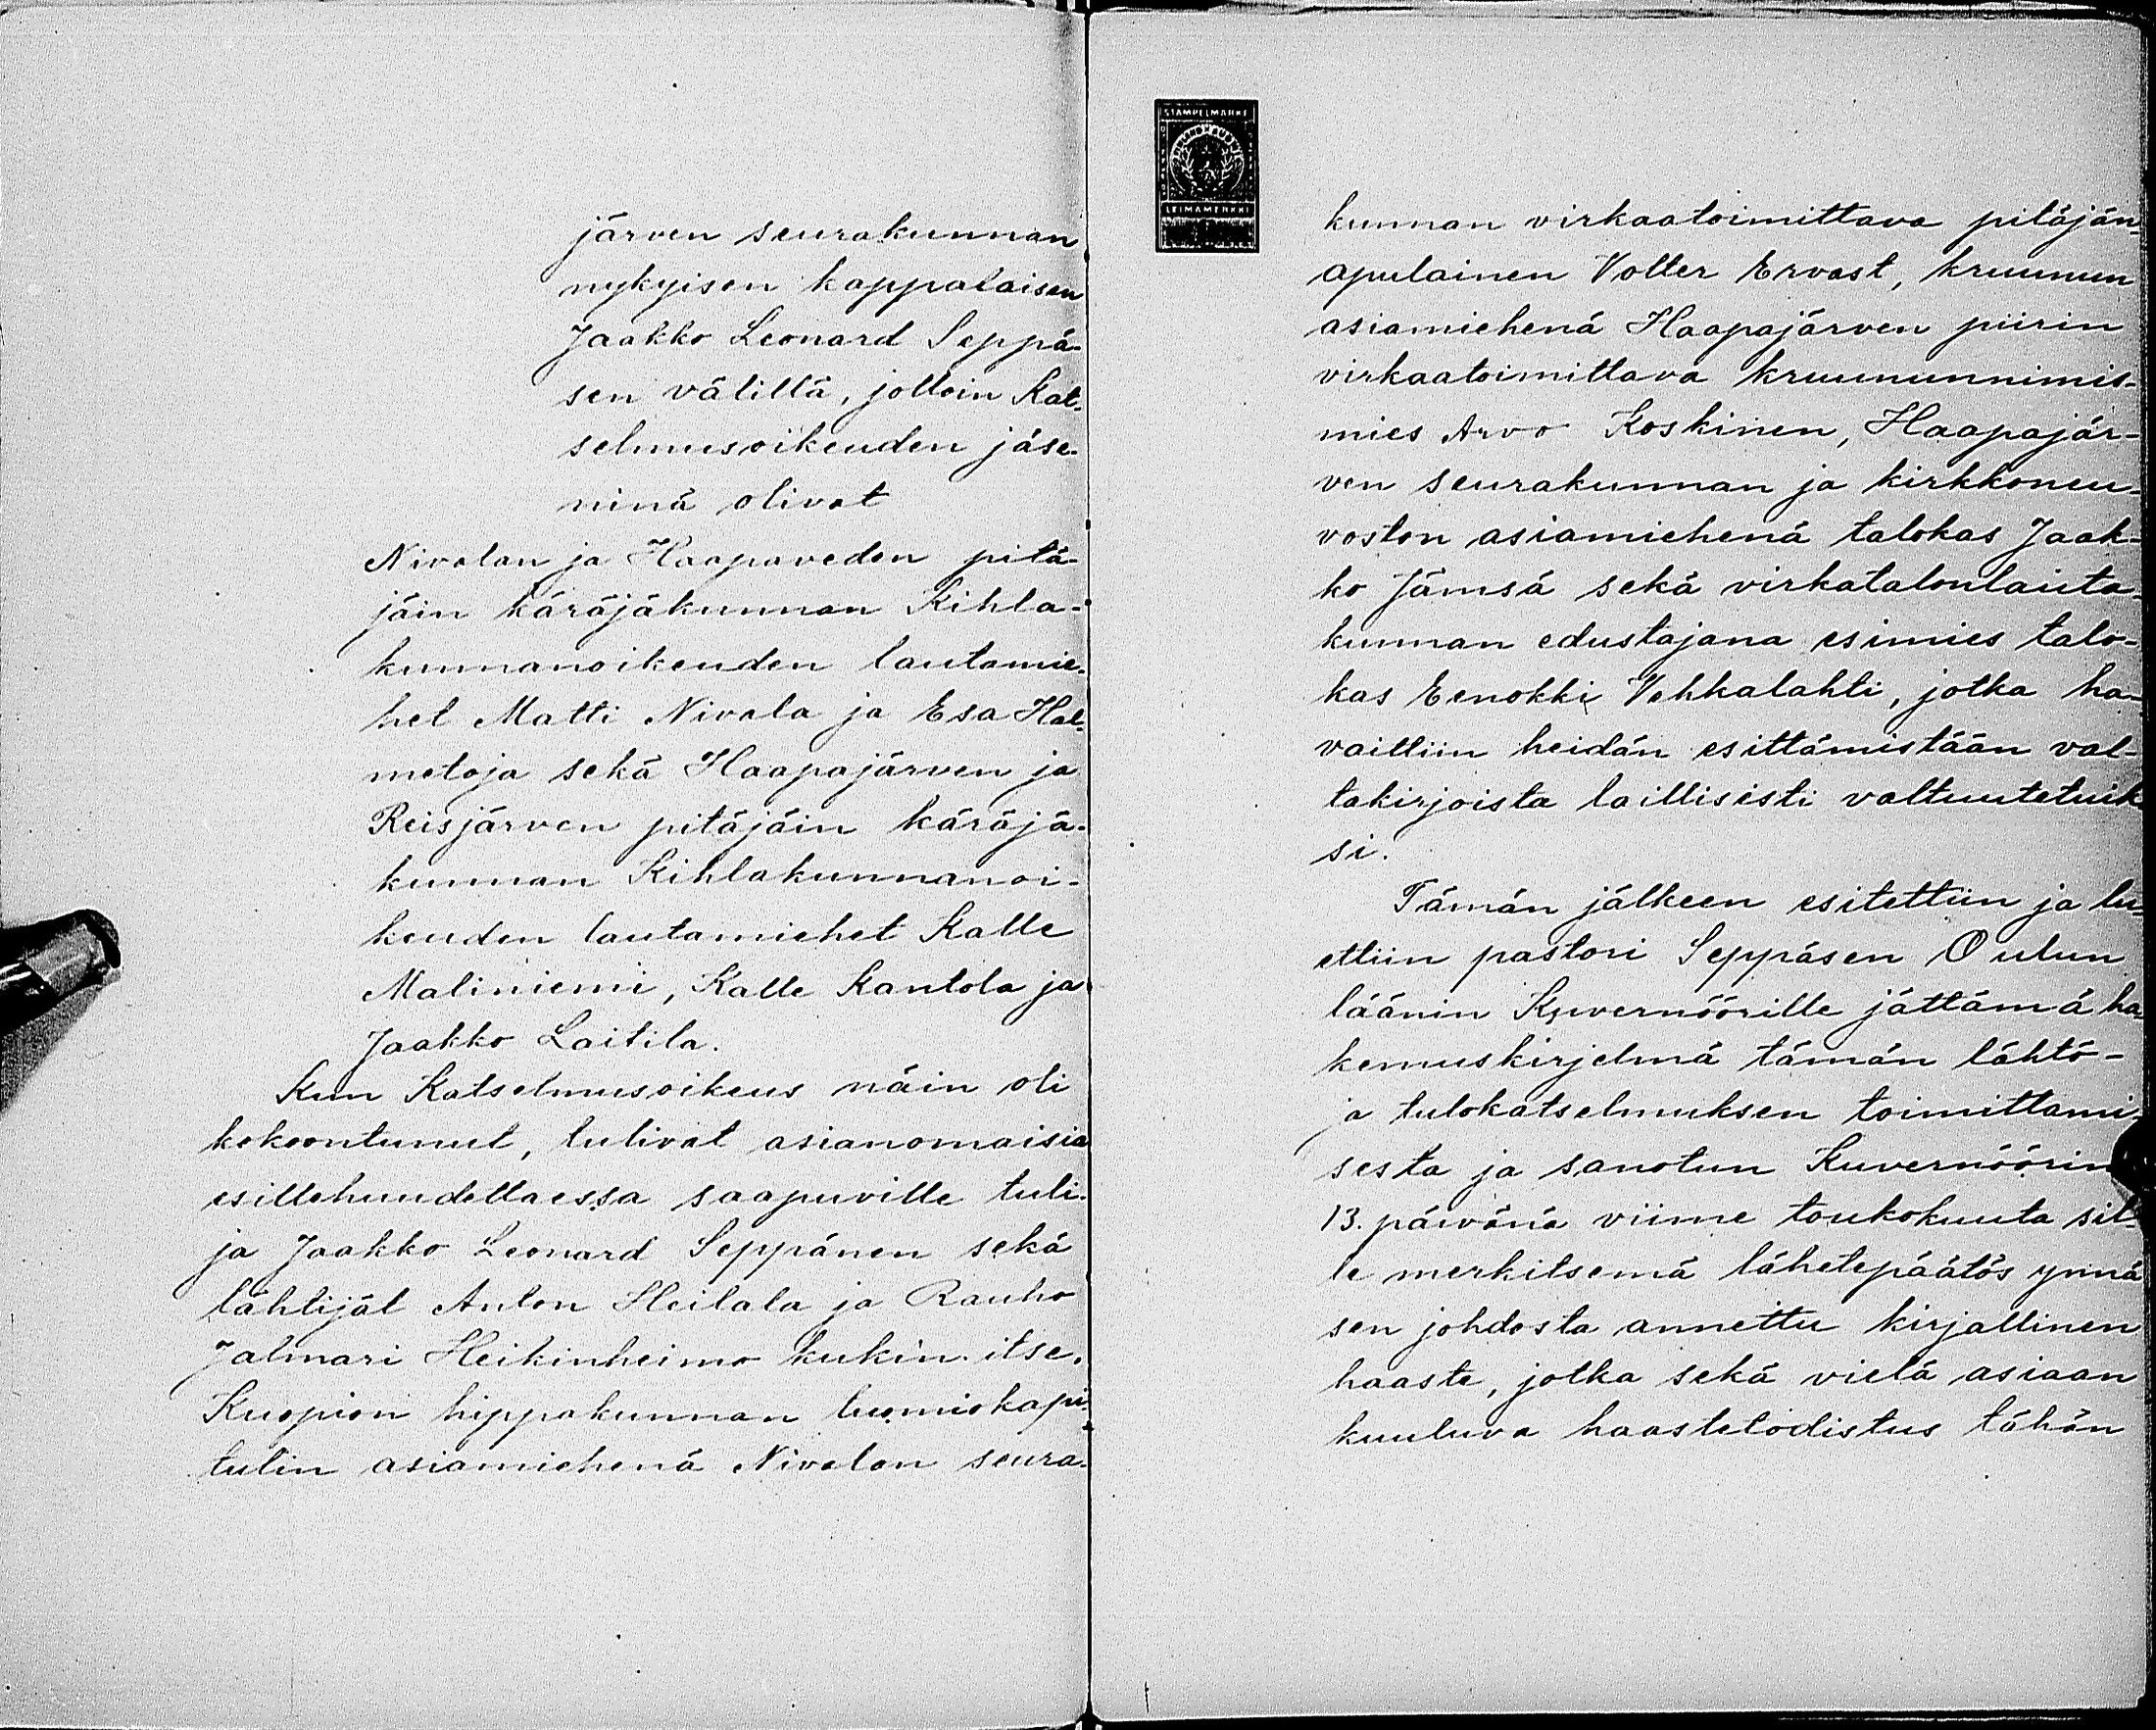 järven seurakunnan
nykyisen kappalaisen
Jaakko Leonard Seppä-
sen välillä, jolloin Kat-
selmusoikeuden jäse-
ninä olivat
Nivalan ja Haapaveden pitä-
jäin käräjäkunnan Kihla-
kunnanoikeuden lautamie-
het Matti Nivala ja Esa Hal-
metoja sekä Haapajärven ja
Reisjärven pitäjäin käräjä-
kunnan Kihlakunnanoi-
keuden lautamiehet Kalle
Maliniemi, Kalle Kantola ja
Jaakko Laitila.
Kun Katselmusoikeus näin oli
kokoontunut, tulivat asianomaisia
esillehuudettaessa saapuville tuli-
ja Jaakko Leonard Seppänen sekä
lähtijät Anton Heilala ja Rauho
Jalmari Heikinheimo kukin itse,
Kuopion hippakunnan tuomiokapi-
tulin asiamiehenä Nivalan seura-
STÄMPELMÄRKE
LEIMAMERKKI
kunnan virkaatoimittava pitäjän-
apulainen Volter Ervast, kruunun
asiamiehenä Haapajärven piirin
virkaatoimittava kruununnimis-
mies Arvo Koskinen, Haapajär-
ven seurakunnan ja kirkkoneu-
voston asiamiehenä talokas Jaak-
ko Jämsä sekä virkatalonlauta-
kunnan edustajana esimies talo-
kas Eenokki Vehkalahti, jotka ha-
vaittiin heidän esittämistään val-
takirjoista laillisesti valtuutetuik
si.
Tämän jälkeen esitettiin ja lu-
ettiin pastori Seppäsen Oulun
läänin Kuvernöörille jättämä ha-
kemuskirjelmä tämän lähtö-
ja tulokatselmuksen toimittami-
sesta ja sanotun Kuvernöörin
13. päivänä viime toukokuuta sil-
le merkitsemä lähetepäätös ynnä
sen johdosta annettu kirjallinen
haaste, jotka sekä vielä asiaan
kuuluva haastetodistus tähän